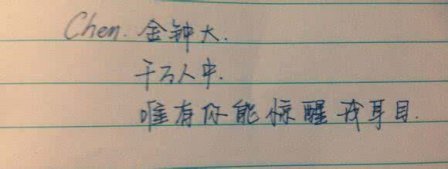 Chen. 金钟大.
千万人中.
唯有你能惊醒我耳目.